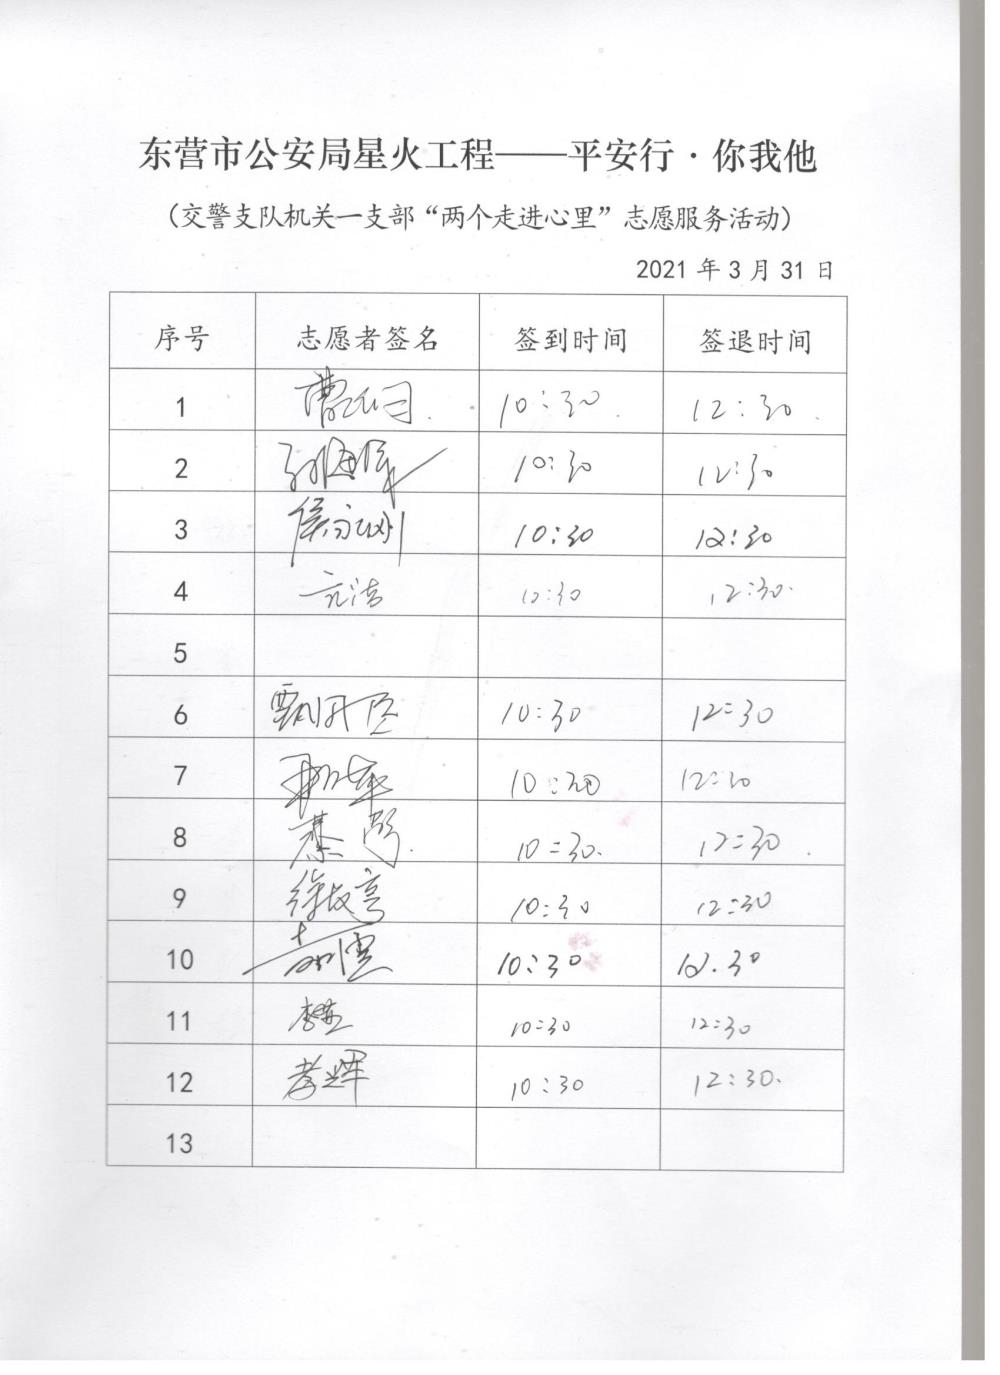 东营市公安局星火工程——平安行·你我他
（交警支队机关一支部“两个走进心里”志愿服务活动）
2021 年 3 月 31 日
序号 志愿者签名 签到时间 签退时间
1 10:30 12:30
2 孙海军 10:30 12:30
3 侯 刚 10:30 12:30
4 12:30 12:30
5
6 10:30 12:30
7 10:30 12:30
8 蔡 10:30 12:30
9 徐 亭 10:30 12:30
10 10:30 12.30
11 李 10:30 12:30
12 李辉 10:30 12:30
13